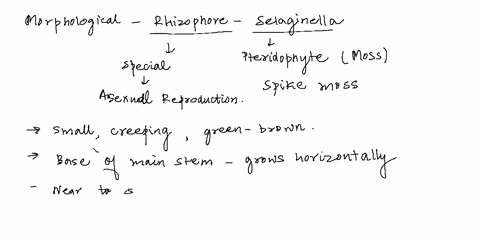 Morphological - Rhizophore - Selaginella
Special
Pteridophyte (Moss)
Spike moss
Asexual Reproduction.
→ Small, creeping, green-brown.
→ Base of main stem - grows horizontally
- Near to s